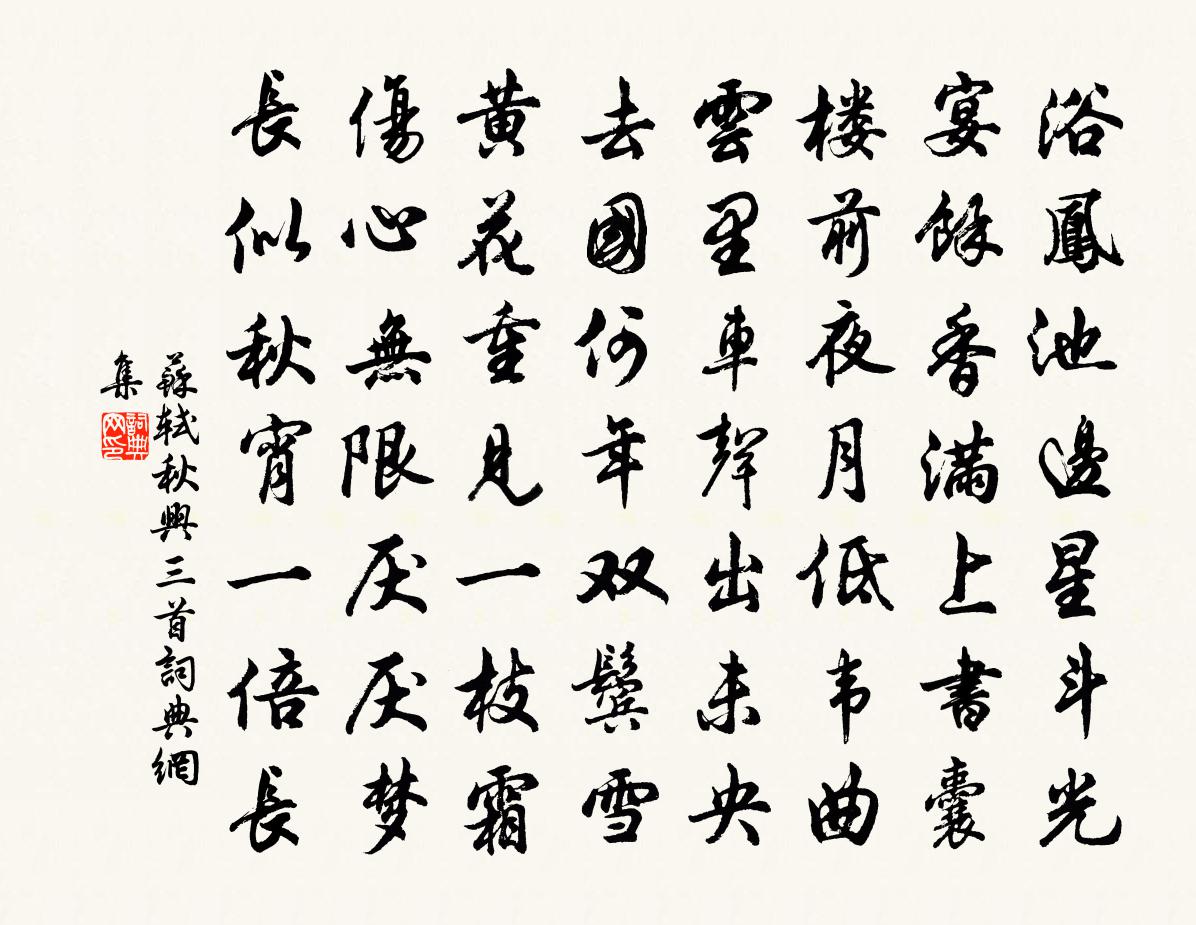 浴鳳池邊星斗光
宴餘香滿上書囊
楼前夜月低韦曲
雲里車聲出未央
去國何年双鬢雪
黃花重見一枝霜
傷心無限厌厌梦
長似秋宵一倍長
蘇軾秋興三首詞典網
集
詞典
网印